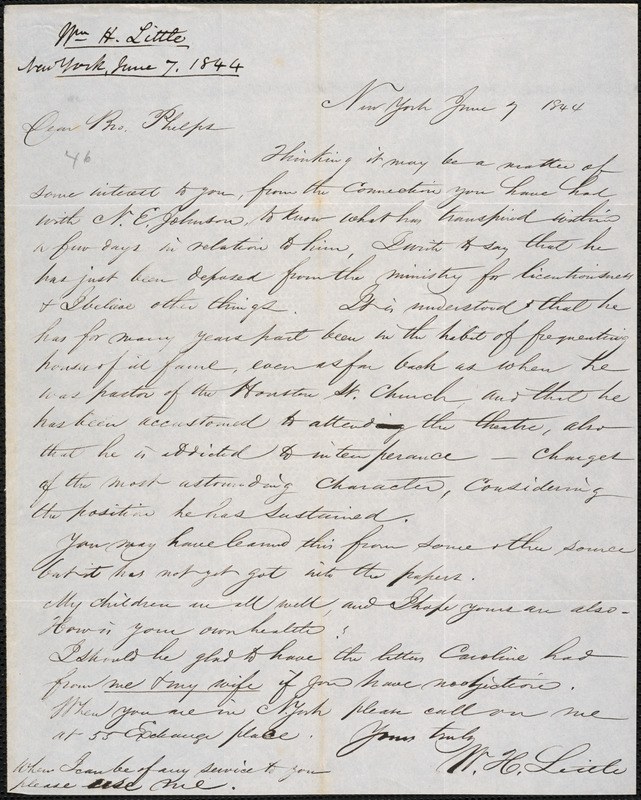 Wm H. Little
New York, June 7. 1844
New York June 7 1844
Dear Bro. Phelps
46
Thinking it may be a matter of
some interest to you, from the connection you have had
with N. E. Johnson, to know what has transpired within
a few days in relation to him, I write to say that he
has just been deposed from the ministry for licentiousness
& I believe other things. It is understood that he
has for many years past been in the habit of frequenting
houses of ill fame, even as far back as when he
was pastor of the Houston St. Church, and that he
has been accustomed to attending the theatre, also
that he is addicted to intemperance – charges
of the most astounding character, considering
the position he has sustained.
You may have learned this from some other source
but it has not yet got into the papers.
My children are all well, and I hope yours are also –
How is your own health?
I should be glad to have the letters Caroline had
from me & my wife if you have no objection.
When you are in N York please call on me
at 55 Exchange place. Yours truly
W. H. Little
When I can be of any service to you
please use me.